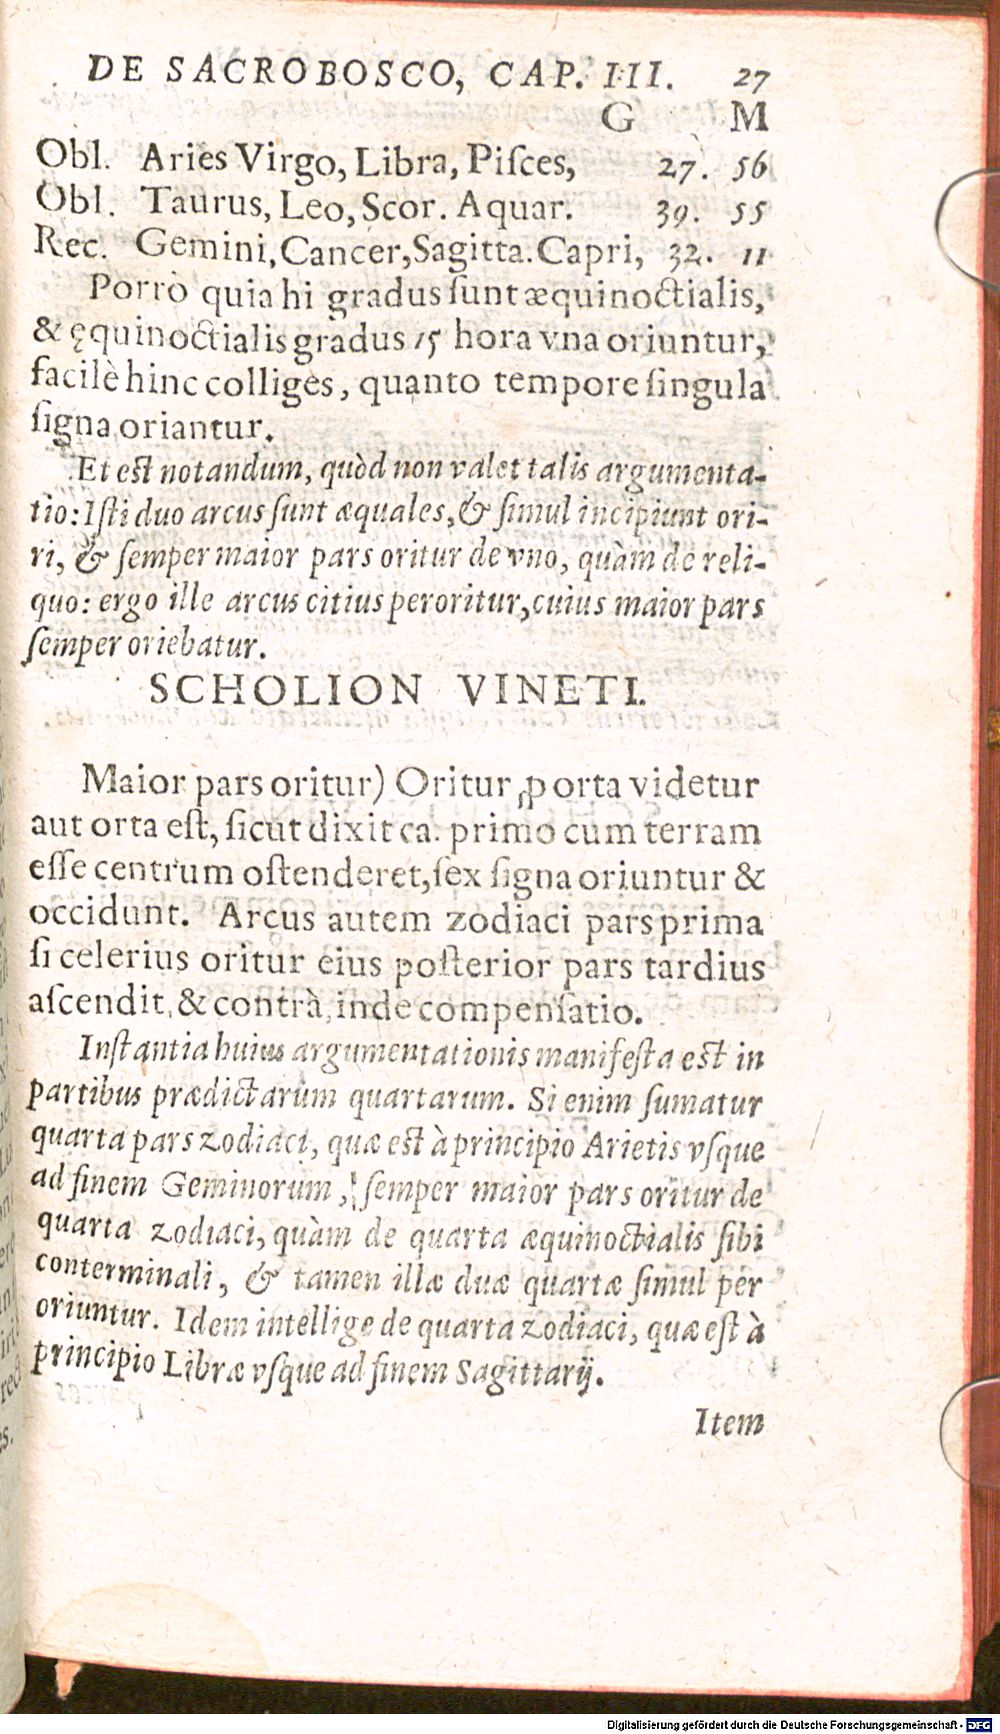 DE SACROBOSCO, CAP. III. 27
G M
Obl. Aries Virgo, Libra, Piſces, 27. 56
Obl. Taurus, Leo, Scor. Aquar. 39. 55
Rec. Gemini, Cancer, Sagitta. Capri, 32. 11
Porrò quia hi gradus ſunt æquinoctialis,
& ęquinoctialis gradus 15 hora vna oriuntur,
facilè hinc colliges, quanto tempore ſingula
ſigna oriantur.
Et eſt notandum, quòd non valet talis argumenta-
tio: Iſti duo arcus ſunt æquales, & ſimul incipiunt ori-
ri, & ſemper maior pars oritur de vno, quàm de reli-
quo: ergo ille arcus citius peroritur, cuius maior pars
ſemper oriebatur.
SCHOLION VINETI.
Maior pars oritur) Oritur ꝓ orta videtur
aut orta eſt, ſicut dixit ca. primo cum terram
eſſe centrum oſtenderet, ſex ſigna oriuntur &
occidunt. Arcus autem zodiaci pars prima
ſi celerius oritur eius poſterior pars tardius
aſcendit, & contrà, inde compenſatio.
Inſtantia huius argumentationis manifeſta eſt in
partibus prædictarum quartarum. Si enim ſumatur
quarta pars zodiaci, quæ eſt à principio Arietis vſque
ad finem Geminorum, ſemper maior pars oritur de
quarta zodiaci, quàm de quarta æquinoctialis ſibi
conterminali, & tamen illæ duæ quartæ ſimul per
oriuntur. Idem intellige de quarta zodiaci, quæ eſt à
principio Libræ vſque ad finem Sagittarij.
Item
Digitalisierung gefördert durch die Deutsche Forschungsgemeinschaft - DFG